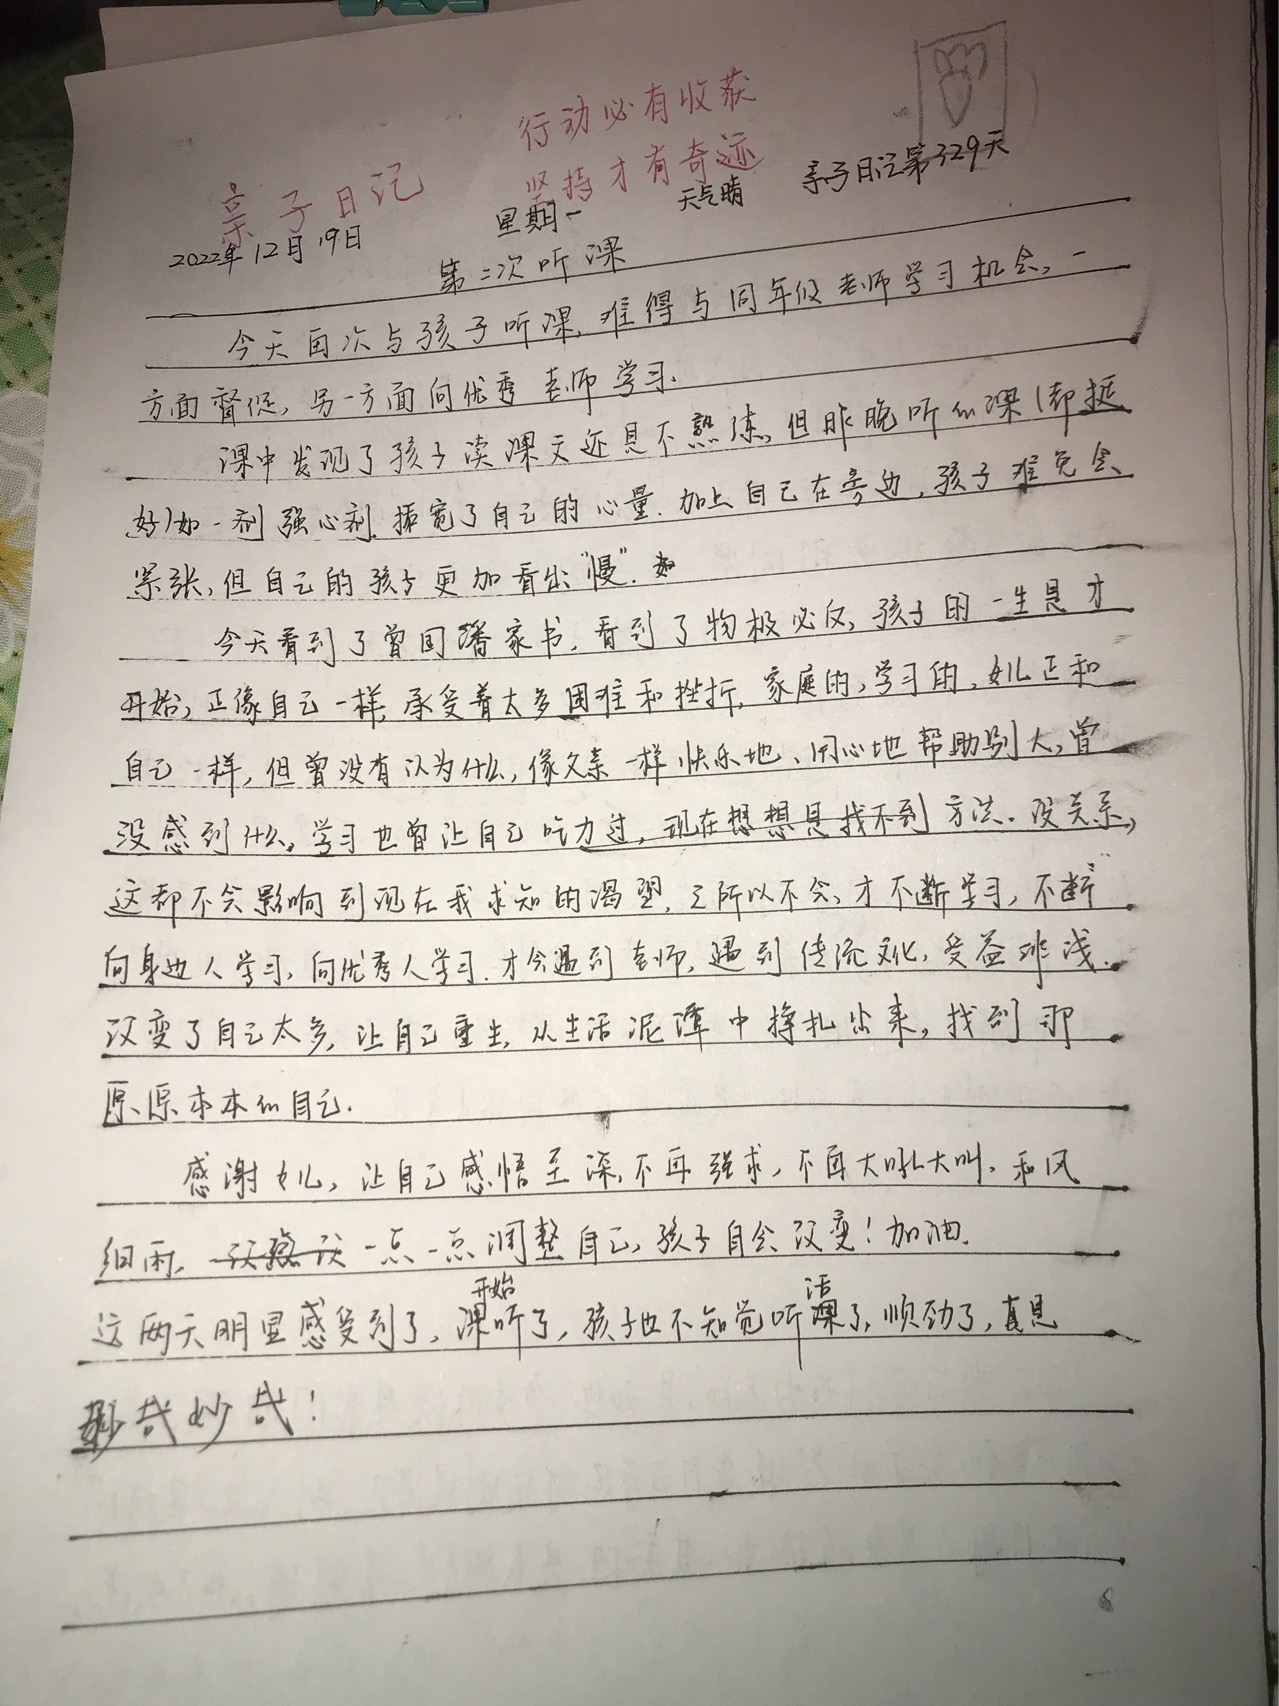 行动必有收获
坚持才有奇迹
亲子日记
亲子日记第329天
2022年12月19日 星期一 天气晴
第二次听课
今天再次与孩子听课,难得与同年级老师学习机会,一
方面督促,另一方面向优秀老师学习.
课中发现了孩子读课文还是不熟练,但昨晚听的课(却挺
好)如一剂强心剂,拓宽了自己的心量.加上自己在旁边,孩子难免会
紧张,但自己的孩子更加看出"慢".
今天看到了曾国藩家书,看到了物极必反,孩子的一生是才
开始,正像自己一样,承受着太多困难和挫折,家庭的,学习的,女儿正和
自己一样,但曾没有认为什么,像父亲一样快乐地、用心地帮助别人,曾
没感到什么,学习也曾让自己吃力过,现在想想是找不到方法.没关系,
这都不会影响到现在我求知的渴望,之所以不会,才不断学习,不断
向身边人学习,向优秀人学习.才会遇到老师,遇到传统文化,受益非浅.
改变了自己太多,让自己重生,从生活泥潭中挣扎出来,找到那
原原本本的自己.
感谢女儿,让自己感悟至深,不再强求,不再大吼大叫.和风
细雨,一点一点调整自己,孩子自会改变!加油.
这两天明显感受到了,开始课听了,孩子也不知觉听话了,顺劲了,真是
妙哉妙哉!